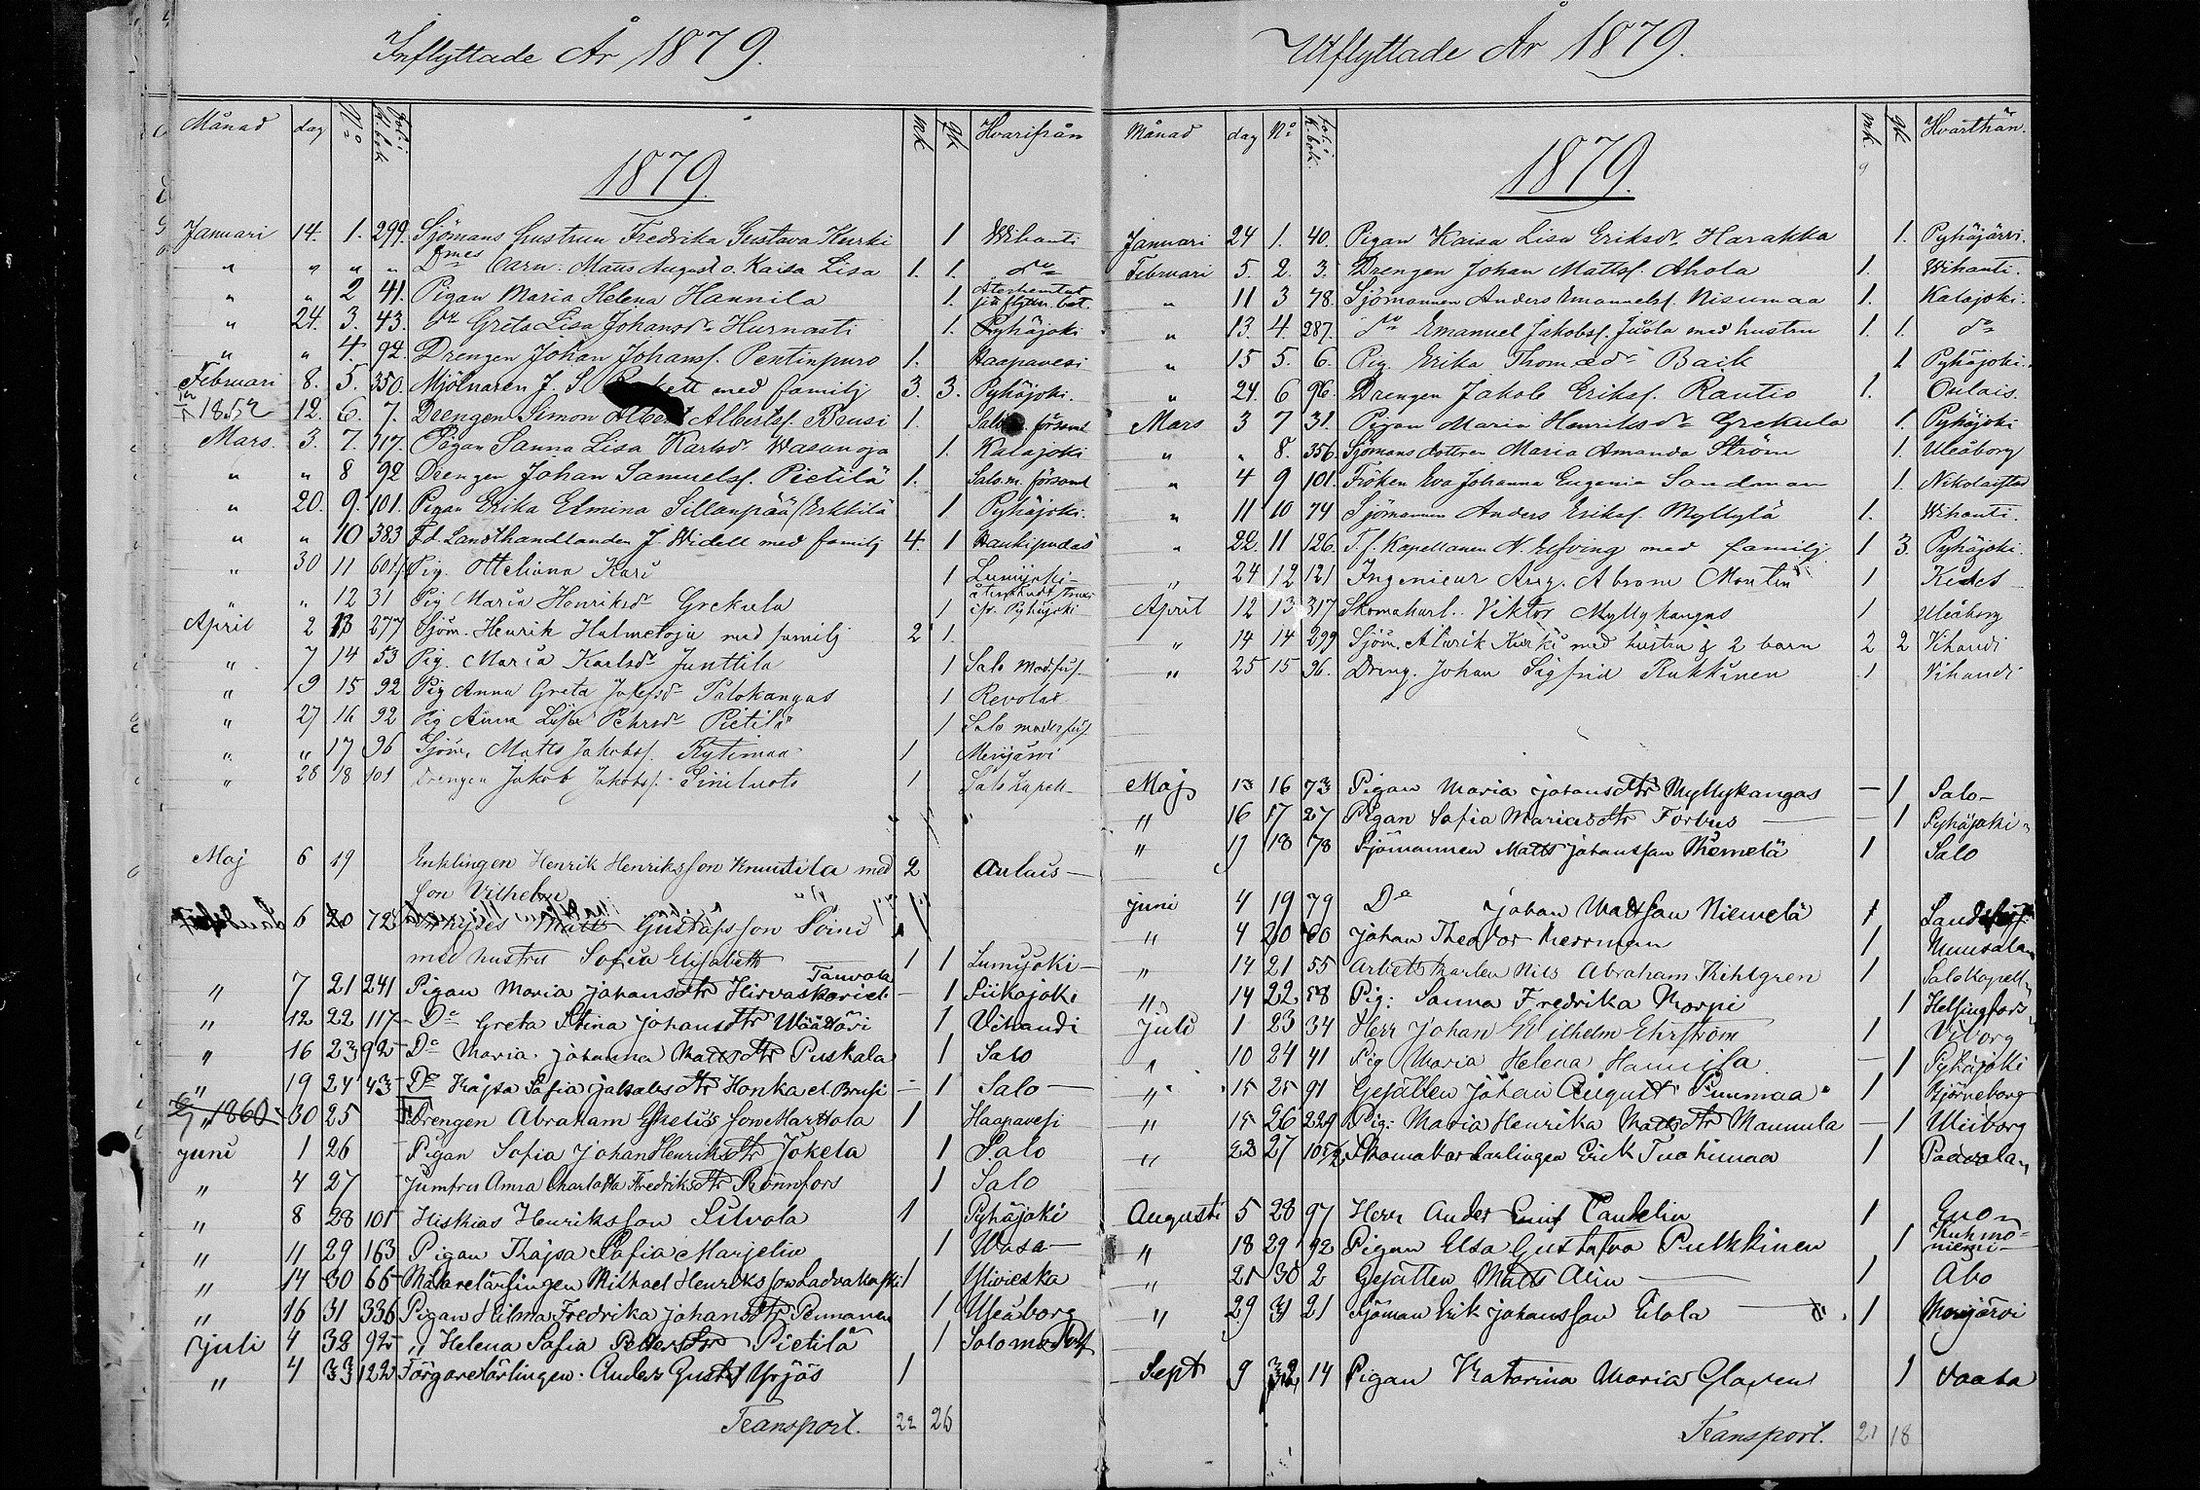 Inflyttade År 1879.
Månad dag No Hvarifrån
1879.
Januari 14. 1. 299. Sjömans hustrun Fredrika Gustava Kurki 1 Wihanti
" " " " barn: Matts August o. Kaisa Lisa 1. 1. do
" " 2 41. Pigan Maria Helena Hannila 1.
" 24. 3. 43. do Greta Lisa Johansdr Hurnasti 1. Pyhäjoki
" " 4. 92. Drengen Johan Johansf. Pentinpuro 1. Haapavesi
Februari 8. 5. 350. Mjölnaren J. S. med familj 3. 3. Pyhäjoki.
1852 12. 6. 7. Drengen Simon Albertsf. Brusi 1. församl
Mars. 3. 7. 117. Pigan Sanna Lisa Karlsdr Wasanoja 1. Kalajoki
" " 8 92 Drengen Johan Samuelsf. Pietilä 1. Salo m. församl
" 20. 9. 101. Pigan Erika Elmina Sillanpää (Erkkilä 1 Pyhäjoki.
" " 10 383 F.d. Landthandlanden J. Widell med familj 4. 1 Haukipudas
" 30 11 601 Pig. Otteliana Kari 1 Lumijoki
" " 12 31 Pig Maria Henriksdr Grekula 1 Pyhäjoki
April 2 13 277 Sjöm. Henrik Halmetoja med familj 2 1.
" 7 14 53 Pig. Maria Karlsdr Junttila 1 Salo
" 9 15 92 Pig Anna Greta Josefsdr Palokangas 1 Revolax
" 27 16 92 Pig Anna Lisa Pehrsdr Pietilä 1 Salo
" " 17 96 Sjöm. Matts Jakobsf. Kytimaa 1 Merijärvi
" 28 18 101 Drengen Jakob Jakobsf. Siniluoto 1 Salo Kapell
Maj 6 19 Enklingen Henrik Henriksson Knuutila med 2 Aulais
Son Vilhelm
6 20 72 Gustafsson Soini
med hustru Sofia Elisabeth 1 1 Lumijoki
Tauvola
" 7 21 241 Pigan Maria Johansdtr Hirvaskorieli 1 Siikajoki
" 12 22 117 Do Greta Stina Johansdtr Wäätäri 1 Vihandi
" 16 23 92 Do Maria Johanna Mattsdtr Puskala 1 Salo
" 19 24 43 Do Kajsa Sofia Jakobsdtr Honka el. Brusi 1 Salo
1860 30 25 Drengen Abraham Marttola 1 Haapavesi
Juni 1 26 Pigan Sofia Johan Henriksdtr Jokela 1 Salo
" 4 27 Jumfru Anna Charlotta Fredriksdtr Rönnfors 1 Salo
" 8 28 101 Hiskias Henriksson Silvola 1 Pyhäjoki
" 11 29 163 Pigan Thajsa Sofia Marjelin 1 Wasa
" 14 30 66 Målarelärlingen Mikhael Henriksson 1 Ylivieska
" 16 31 336 Pigan Hilma Fredrika Johansdtr Penmanen 1 Uleåborg
Juli 4 32 92 " Helena Sofia Pettersdtr Pietilä 1 Salo
" 4 33 122 Färgarelärlingen Anders Gustaf Yrjös 1
Transport. 22 26
Utflyttade År 1879.
Månad dag No mk. qk. Hvarthän.
1879.
Januari 24 1. 40. Pigan Kaisa Lisa Eriksdr Harakka 1. Pyhäjärvi.
Februari 5. 2. 3. Drengen Johan Mattsf. Ahola 1. Wihanti.
" 11 3 78. Sjömannen Anders Emanuelsf. Nisumaa 1. Kalajoki.
" 13. 4. 287. do Emanuel Jakobsf. Juola med hustru 1. 1. do
" 15 5. 6. Pig. Erika Thomædr Baik 1 Pyhäjoki.
" 24. 6 96. Drengen Jakob Eriksf. Rautio 1. Oulais.
Mars 3 7 31. Pigan Maria Henriksdr Grekula 1. Pyhäjoki
" " 8. 356. Sjömans dottren Maria Amanda Ström 1. Uleåborg
" 4 9 101. Fröken Eva Johanna Eugenia Sandman 1. Nikolaistad
" 11 10 74 Sjömannen Anders Eriksf. Myllylä 1. Wihanti.
" 22. 11 126. T.f. Kapellanen N. Elfving med familj 1 3. Pyhäjoki.
" 24 12 121 Ingenieur Abram Montin 1 Kides
April 12 13 317 Skomakarl. Viktor Myllykangas 1 Uleåborg
" 14 14 299 Sjöm. Alarik Kurki med hustru & 2 barn 2 2 Vihandi
" 25 15 96. Dreng. Johan Sigfrid Rukkinen 1 Vihandi
Maj 13 16 73 Pigan Maria Johansdtr Myllykangas 1 Salo
" 16 17 27 Pigan Sofia Mariasdtr Forbus 1 Pyhäjoki
" 17 18 78 Sjömannen Matts Johansson Niemelä 1 Salo
Juni 4 19 79 Do Johan Mattsson Niemelä 1
" 4 20 80 Johan Theodor Herrman 1 Muusala
" 14 21 55 Arbetskarlen Nils Abraham Kihlgren 1 Salo Kapell
" 14 22 58 Pig: Sanna Fredrika Norpi 1 Helsingfors
Juli 1 23 34 Herr Johan Wilhelm Ehrström 1 Viborg
" 10 24 41 Pig Maria Helena Hannila 1 Pyhäjoki
" 15 25 91 Gesällen Johan August Punmaa 1 Björneborg
" 15 26 229 Pig: Maria Henrika Mattsdtr Mannula 1 Uleåborg
" 22 27 105/2 Skomakarlärlingen Erik Tuohimaa 1 Paavola
Augusti 5 28 97 Herr Ander Emil Candelin 1 Enon
" 18 29 92 Pigan Elsa Gustafva Pulkkinen 1 Kuhmoniemi
" 21 30 2 Gesällen Matts Alin 1 Åbo
" 29 31 21 Sjöman Erik Johansson Eilola 1 Merijärvi
Sept 9 32 14 Pigan Katarina Maria Glaven 1 Vaasa
Transport. 21 18